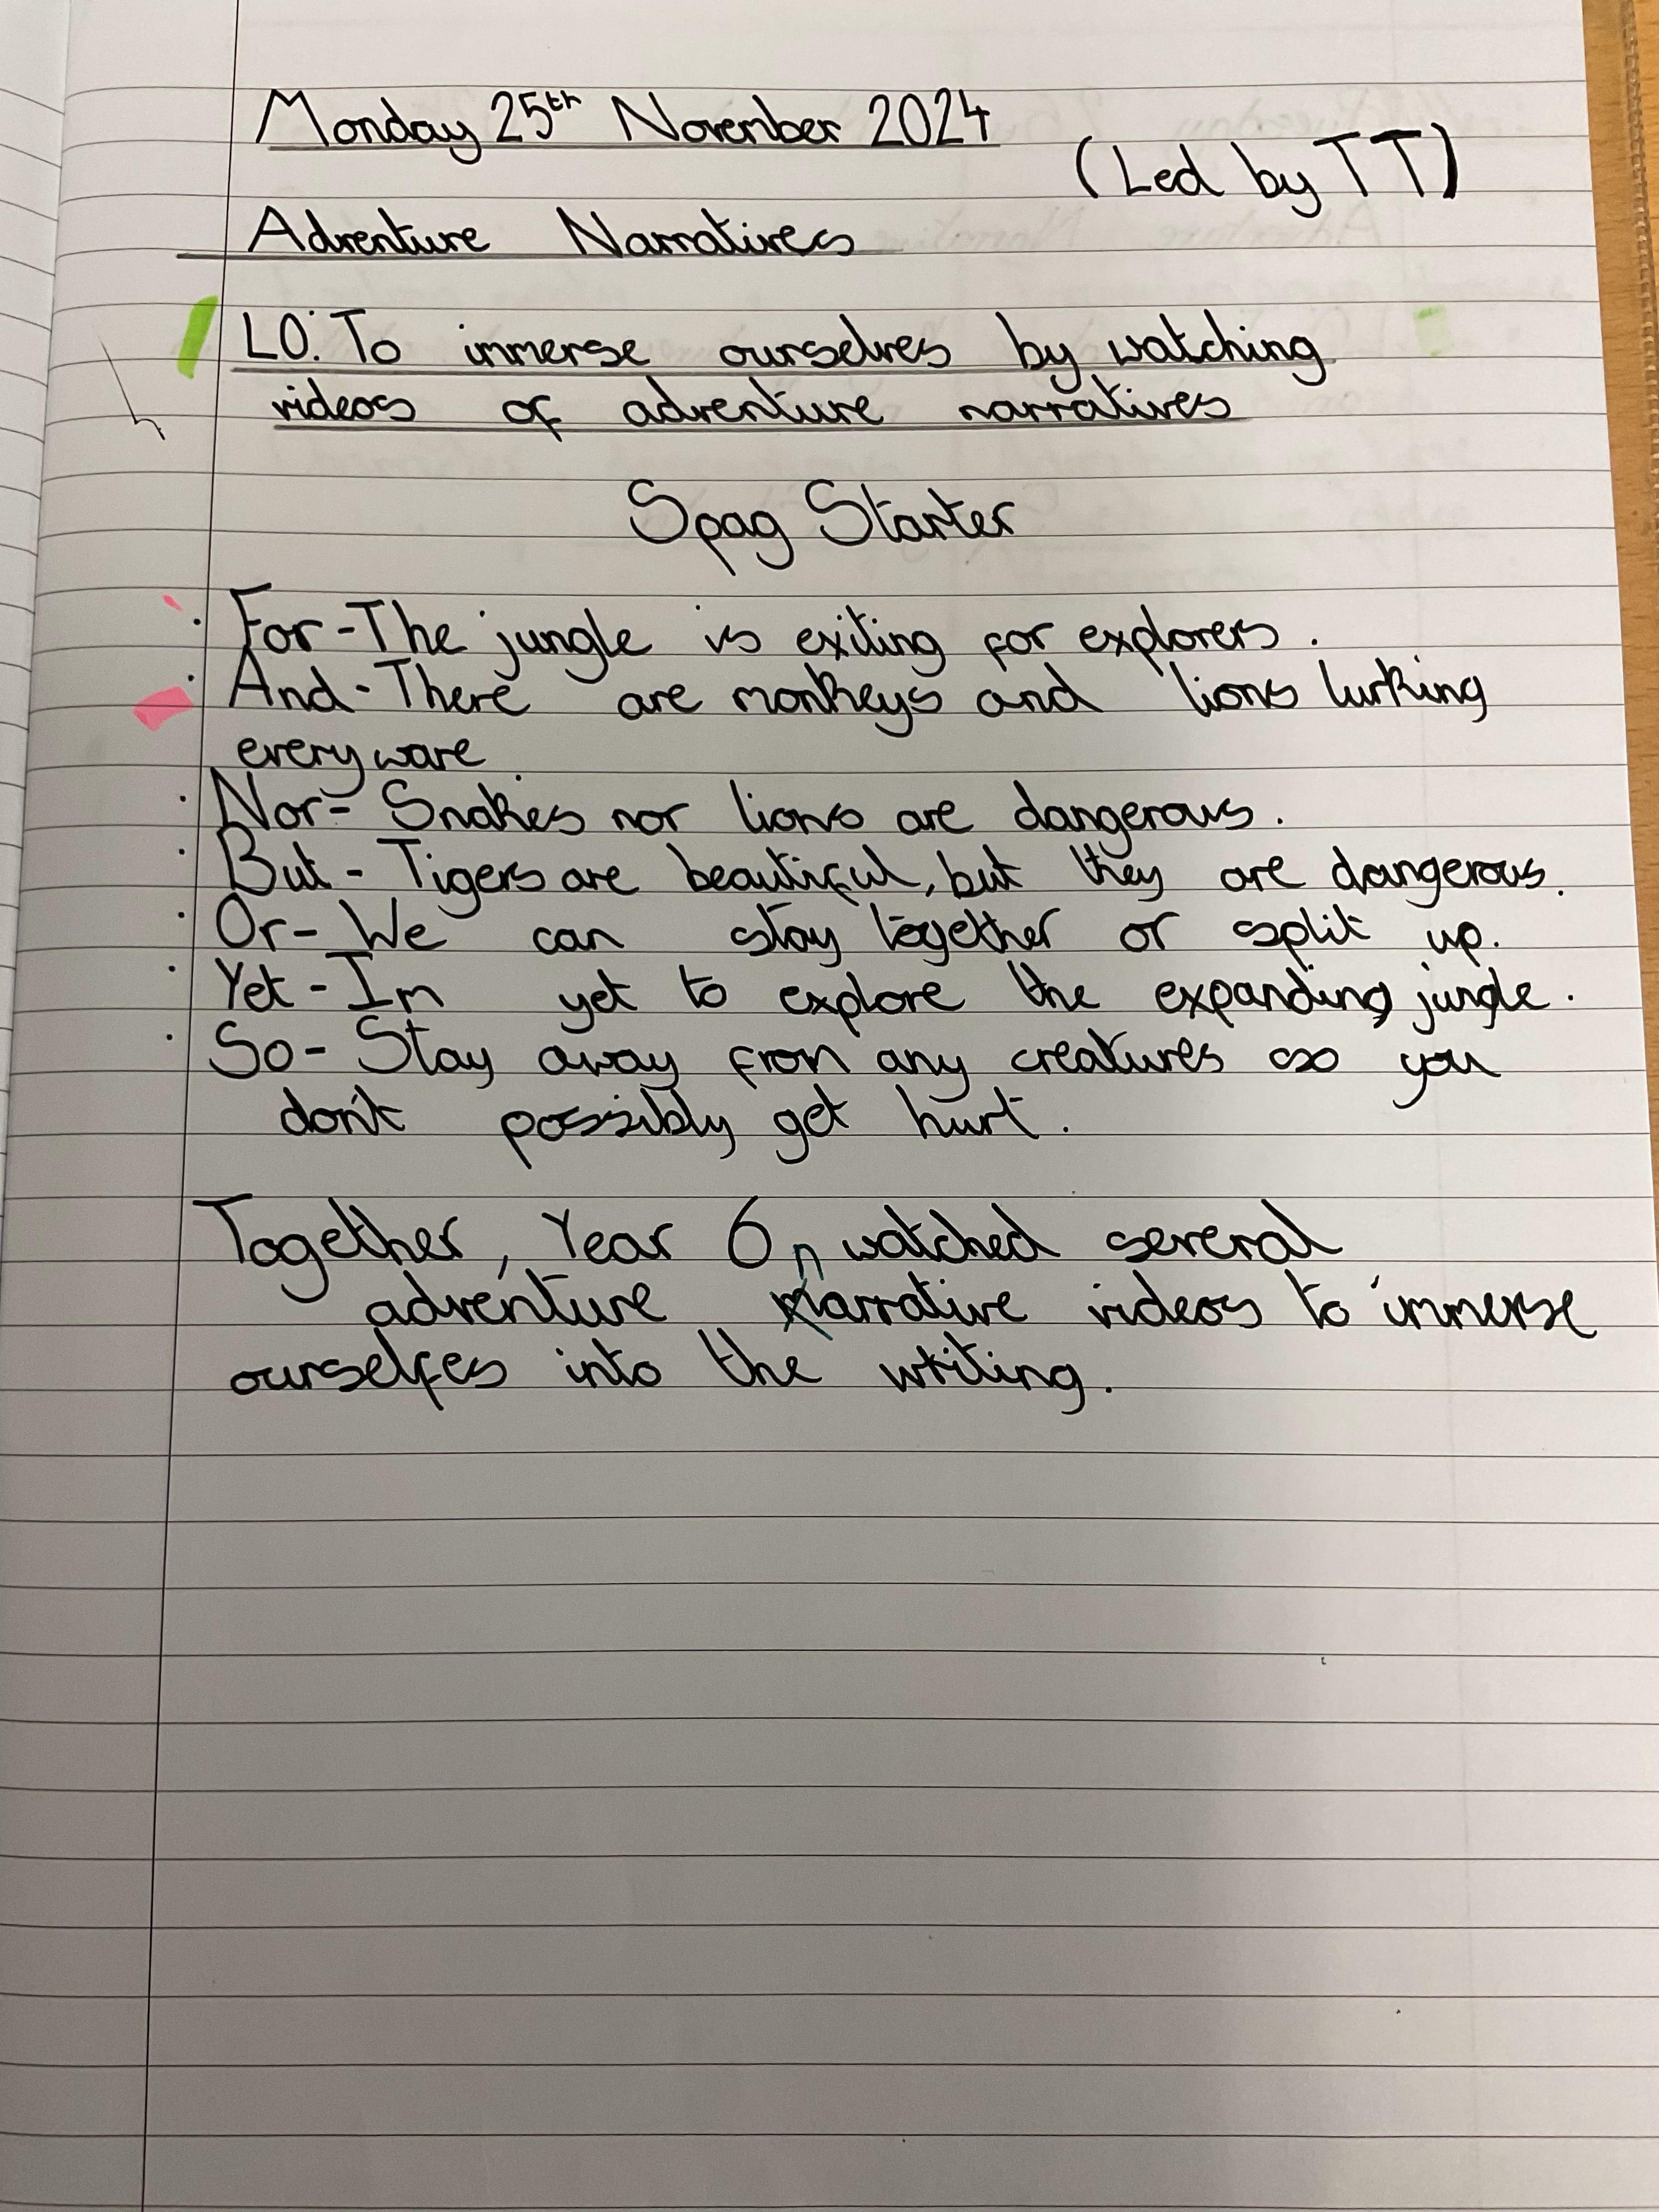 Monday 25th November 2024
(Led by TT)
Adventure Narratives
LO: To immerse ourselves by watching
videos of adventure narratives
Spag Starter
· For - The jungle is exiting for explorers.
· And - There are monkeys and lions lurking
everyware.
· Nor - Snakes nor lions are dangerous.
· But - Tigers are beautiful, but they are dangerous.
· Or - We can stay together or split up.
· Yet - Im yet to explore the expanding jungle.
· So - Stay away from any creatures so you
don't possibly get hurt.
Together, Year 6 watched several
adventure narrative videos to immerse
ourselfes into the writing.